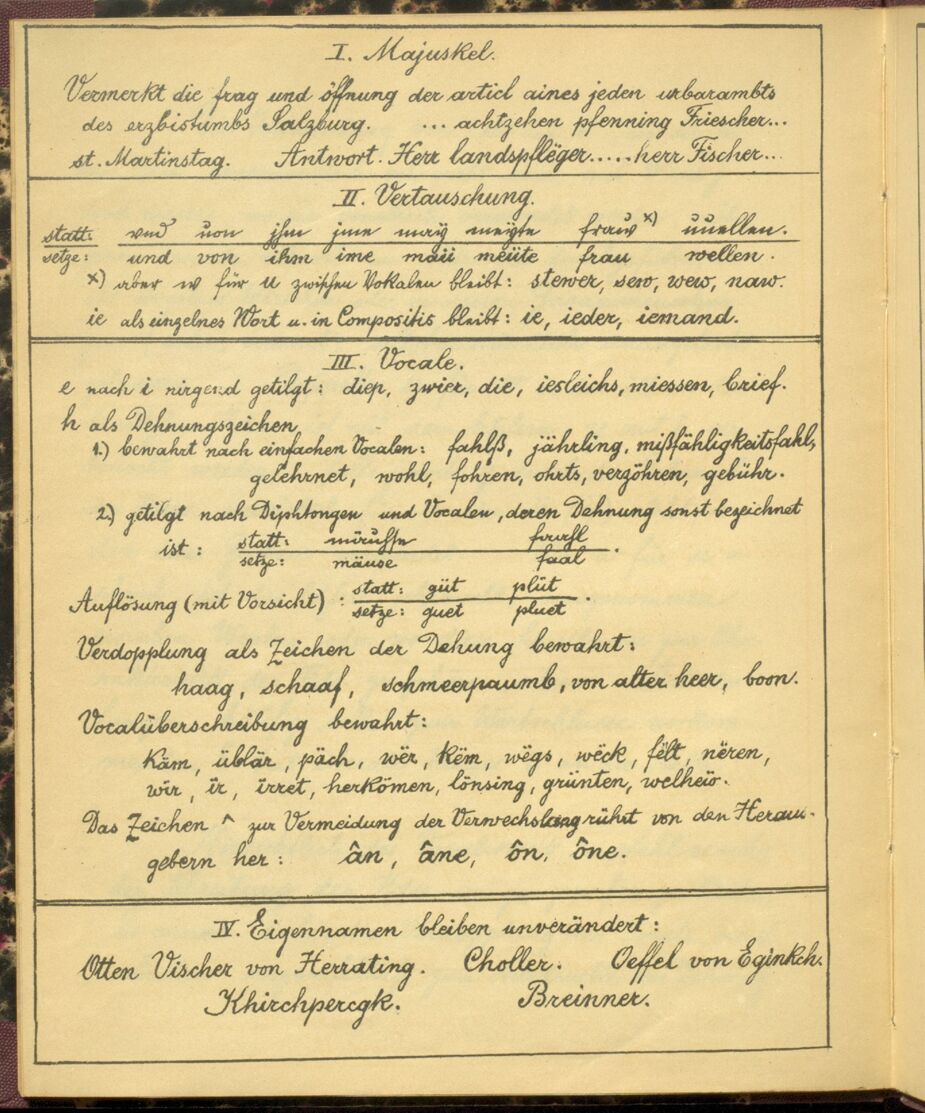 I. Majuskel.
Vermerkt die frag und öffnung der articl aines jeden urbarambts
des erzbistumbs Salzburg. ... achtzehen pfenning Friescher...
st. Martinstag. Antwort. Herr landspfléger..... herr Fischer...
II. Vertauschung.
statt: vnd uon jhm jme maÿ meÿte frauw x) uuellen.
setze: und von ihm ime maii meüte frau wellen.
x) aber w für u zwischen Vokalen bleibt: stewer, sew, wew, naw.
ie als einzelnes Wort u. in Compositis bleibt: ie, ieder, iemand.
III. Vocale.
e nach i nirgend getilgt: diep, zwier, die, iesleichs, miessen, brief.
h als Dehnungszeichen
1.) bewahrt nach einfachen Vocalen: fahlß, jährling, mißfähligkeitsfahl,
gelehrnet, wohl, fohren, ohrts, verzöhren, gebühr.
2.) getilgt nach Diphtongen und Vocalen, deren Dehnung sonst bezeichnet
ist: statt:
setze: mäuse faal
Auflösung (mit Vorsicht): statt: güt plüt
setze: guet pluet.
Verdopplung als Zeichen der Dehung bewahrt:
haag, schaaf, schmeerpaumb, von alter heer, boon.
Vocalüberschreibung bewahrt:
käm, üblär, päch, wër, këm, wëgs, wëck, fëlt, nëren,
wir, ïr, ïrret, herkömen, lönsing, grünten, welheẅ.
Das Zeichen ^ zur Vermeidung der Verwechslang rührt von den Herau-
gebern her: ân, âne, ôn, ône.
IV. Eigennamen bleiben unverändert:
Otten Vischer von Herrating. Choller. Oeffel von Eginkch.
Khirchpercgk. Breinner.